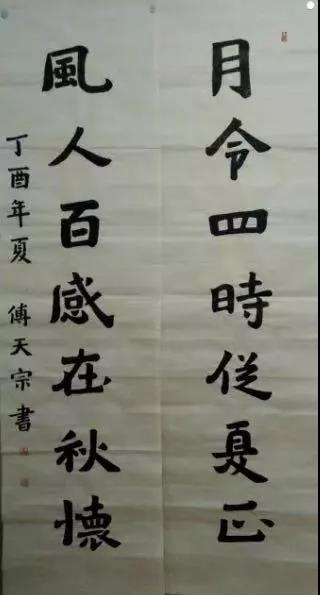 月令四時従夏正
風人百感在秋懷
丁酉年夏 傅天宗書